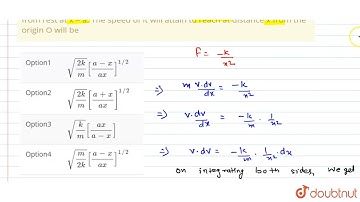 from rest at x = a. The speed of it will attain to reach at distance x from the
origin O will be
Option1 √(2k/m) [(a − x)/ax]^{1/2}
Option2 √(2k/m) [(a + x)/ax]^{1/2}
Option3 √(k/m) [ax/(a − x)]
Option4 √(m/2k) [(a − x)/ax]^{1/2}
F = −k/x²
⇒) m v.dv/dx = −k/x²
⇒) v.dv/dx = −k/m . 1/x²
⇒) v.dv = −k/m . 1/x² . dx
on integrating both sides, we get
doubtnut